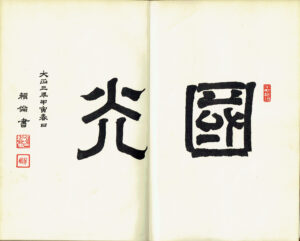 國光
大正三年甲寅春日
賴倫書